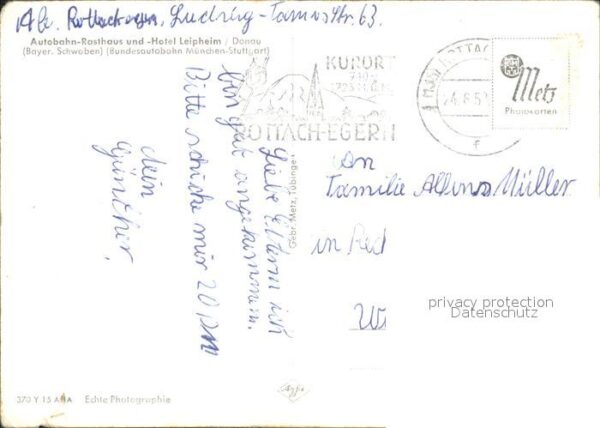 Abs. Rottach-Egern, Ludwig-Thoma-Str. 63.
Autobahn-Rasthaus und -Hotel Leipheim / Donau
(Bayer. Schwaben) (Bundesautobahn München-Stuttgart)
KURORT
730-
1725 M.Ü.M.
ROTTACH-EGERN
ROTTAC
4.8.5
f
Metz
Photokarten
Liebe Eltern ich
bin gut angekommen.
Bitte schicke mir 20 DM
dein
Günther,
Gebr. Metz, Tübingen
An
Familie Alfons Müller
in
W
privacy protection
Datenschutz
370 Y 15 AGA Echte Photographie
Agfa